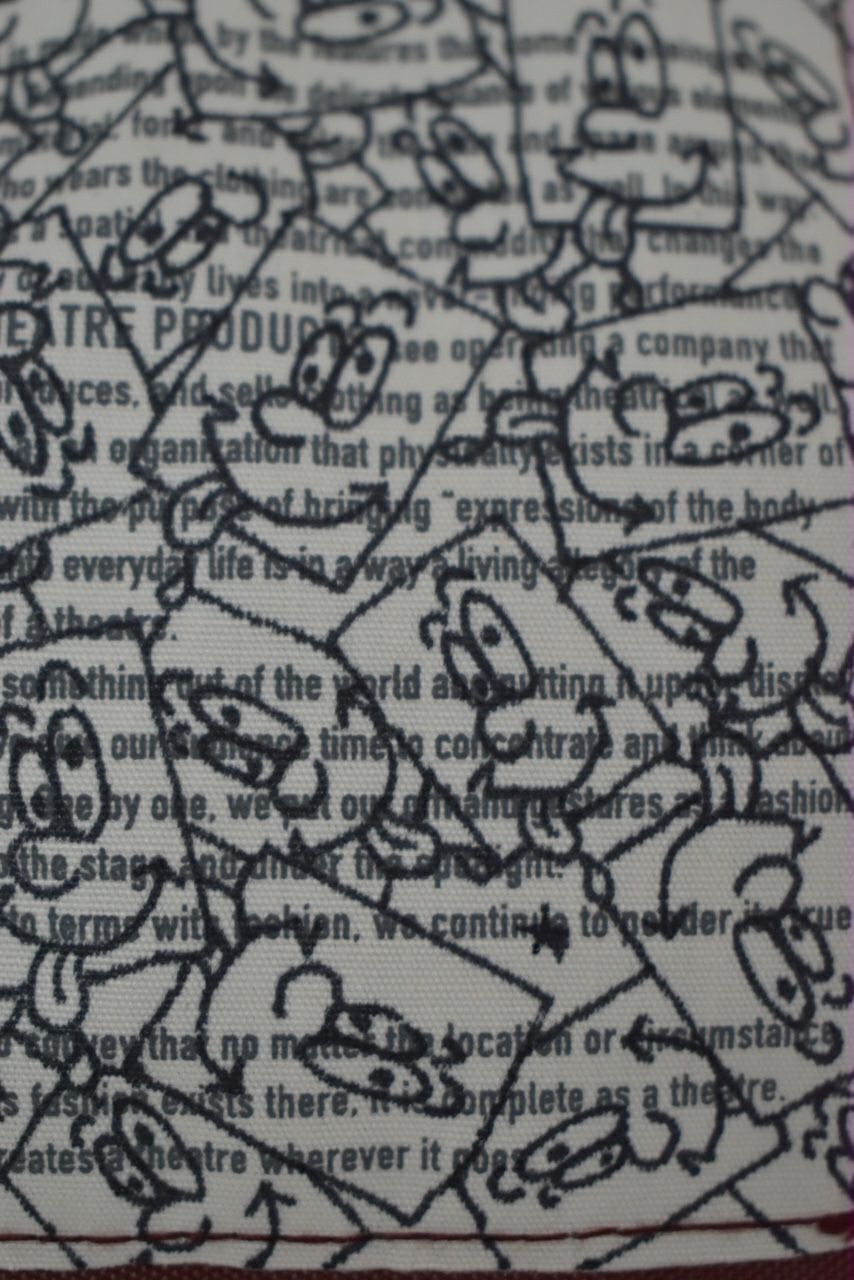 is made which by the features that come
depending upon the delicate balance of various elements
material, form, and the and space around the
who wears the clothing are considered as well. In this way,
is a spatial and theatrical commodity that changes the
of ordinary lives into a never-ending performance.
THEATRE PRODUCTS see operating a company that
produces, and sells clothing as being theatrical as well,
as an organization that physically exists in a corner of
with the purpose of bringing "expressions of the body
into everyday life is in a way a living allegory of the
of a theatre.
something out of the world and putting it up on display
give our audience time to concentrate and think about
One by one, we put our gestures as a fashion
to the stage and under the spotlight.
to terms with fashion, we continue to ponder its true
to convey that no matter the location or circumstance
as fashion exists there, it is complete as a theatre.
creates a theatre wherever it goes